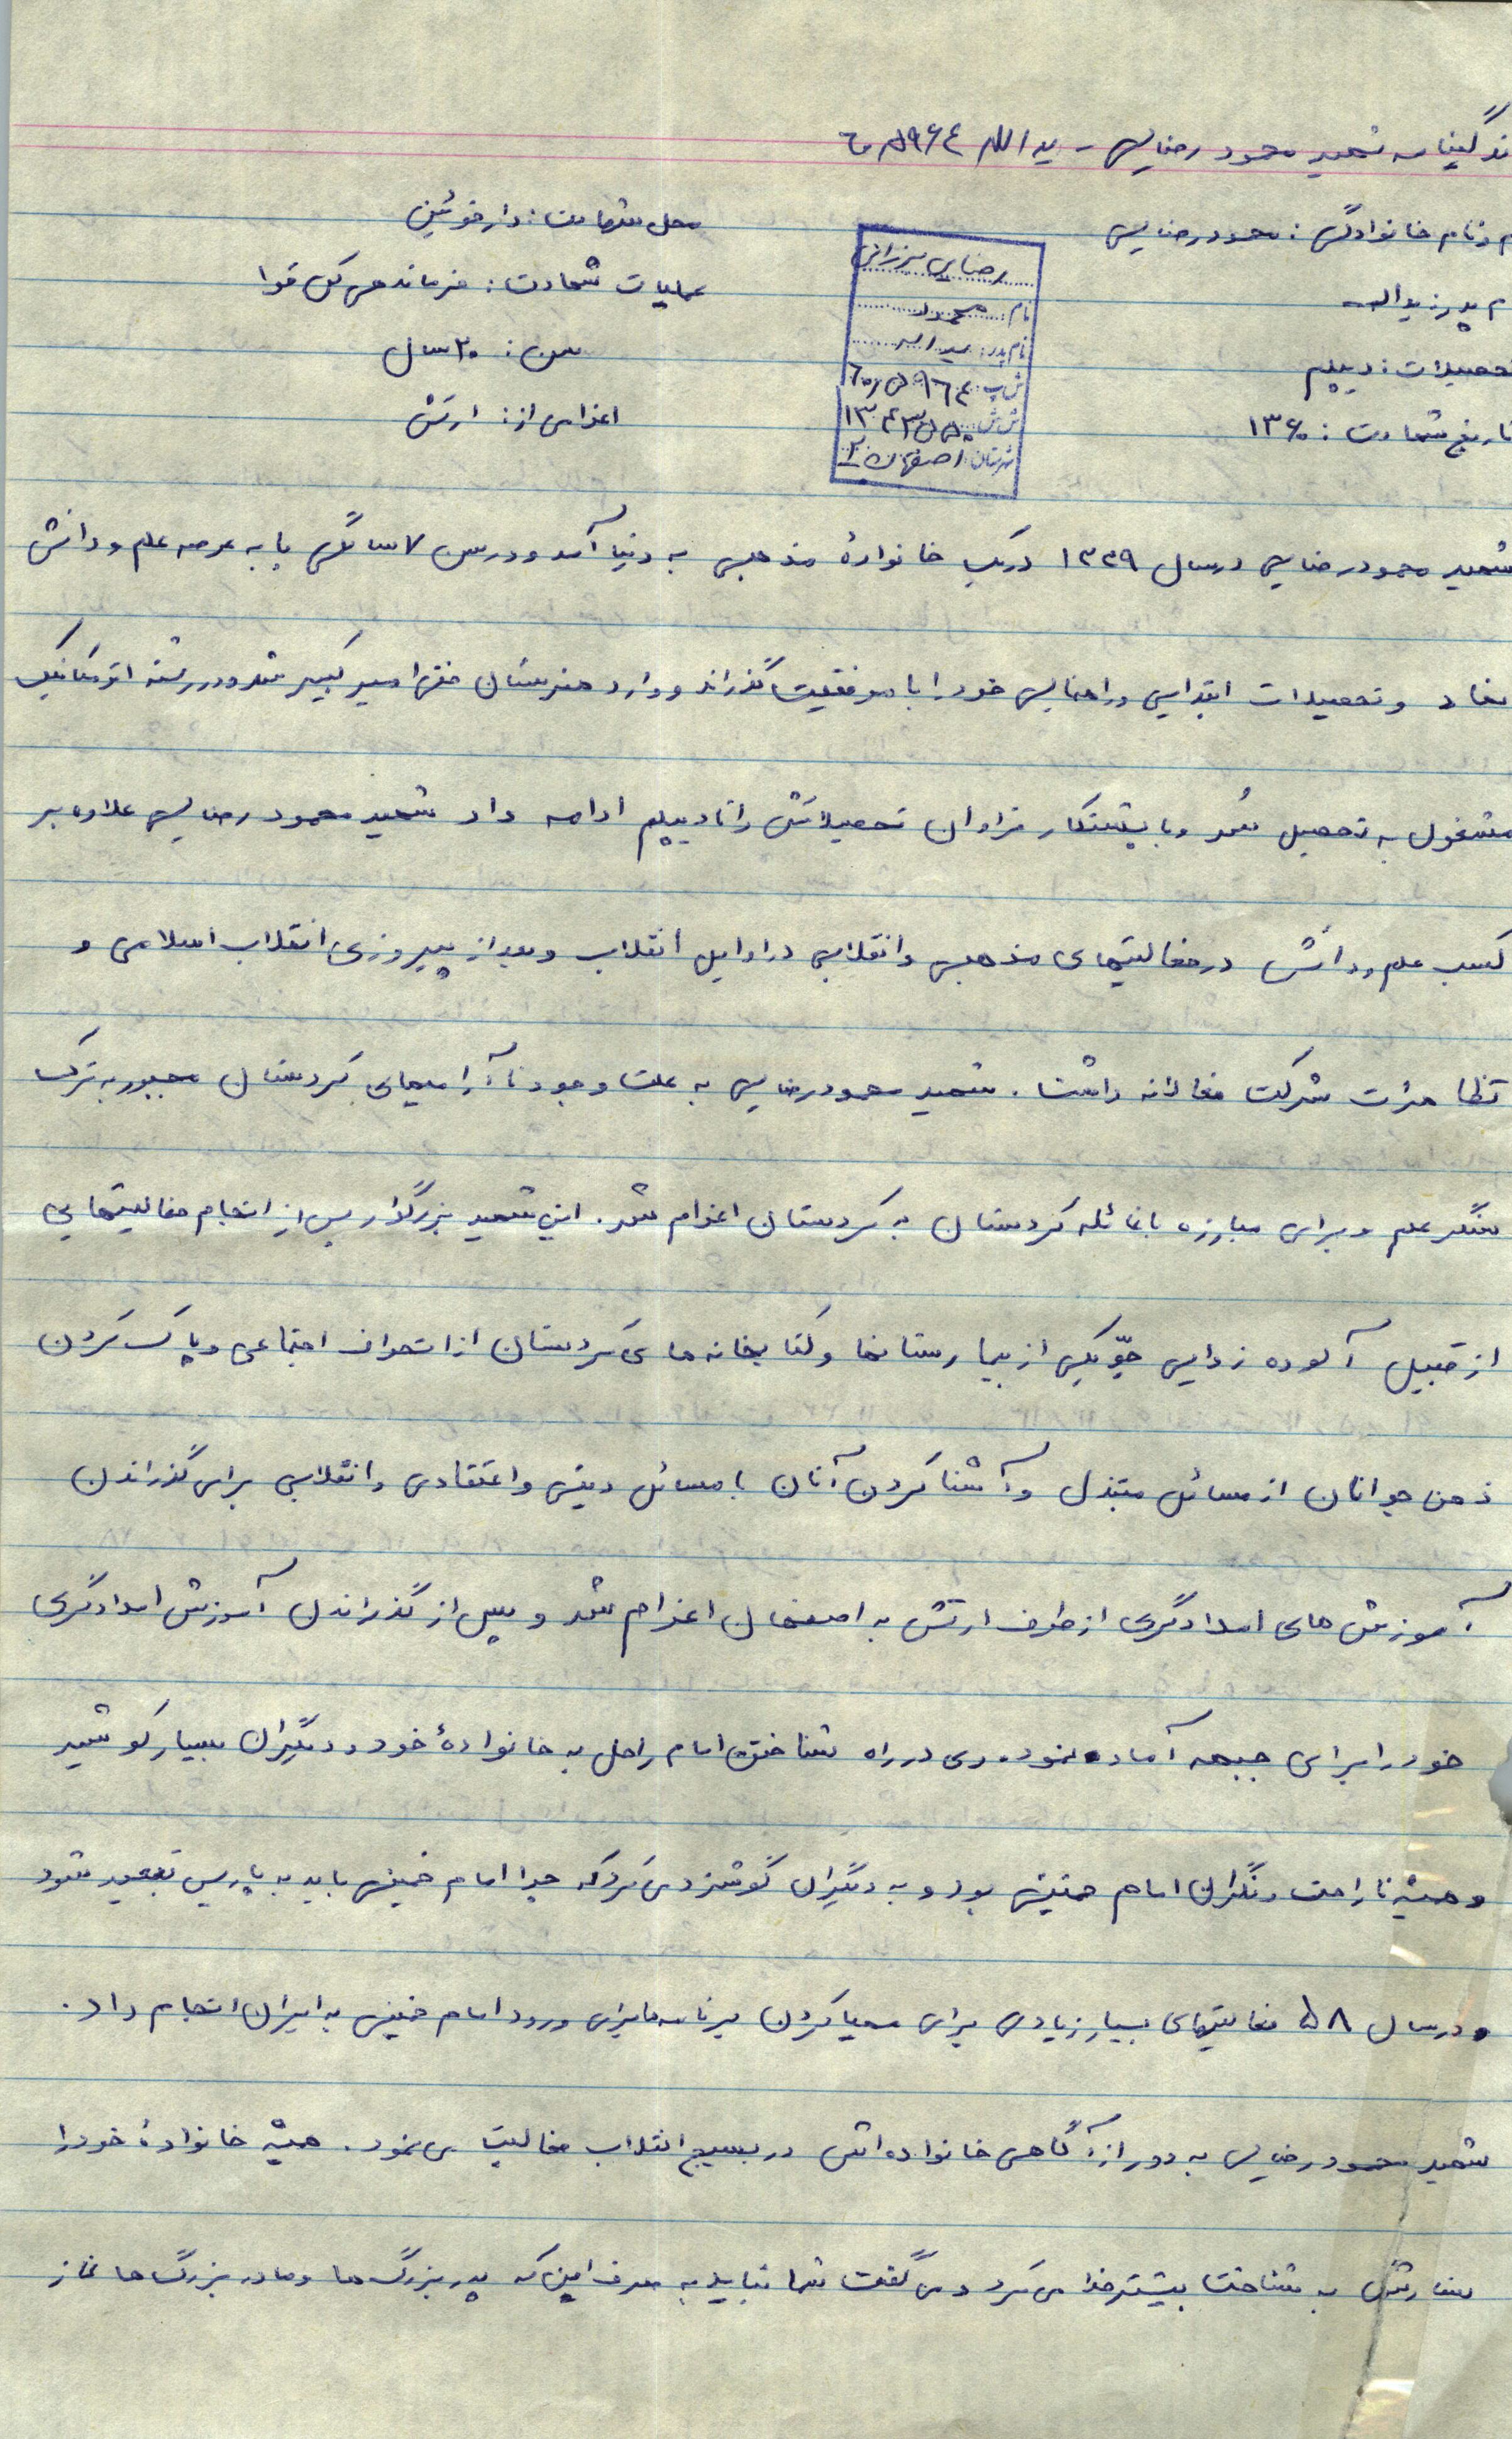 ندگینامه شهید محمود رضایی - یدالله
م و نام خانوادگی: محمود رضایی
محل شهادت: دارخوئین
م پدر: یداله
عملیات شهادت: فرماندهی کل قوا
تحصیلات: دیپلم
سن: ۲۰ سال
تاریخ شهادت: ۱۳۶۰
اعزامی از: ارتش
رضایی
نام: محمود
نام پدر: یداله
ش پ:
ش ش:
شهرستان: اصفهان ۲
شهید محمود رضایی در سال ۱۳۳۹ در یک خانوادهٔ مذهبی به دنیا آمد و در سن ۷ سالگی پا به عرصه علم و دانش
نهاد و تحصیلات ابتدایی و راهنمایی خود را با موفقیت گذراند و وارد هنرستان فنی امیر کبیر شد و در رشته اتومکانیک
مشغول به تحصیل شد و با پشتکار فراوان تحصیلاتش را تا دیپلم ادامه داد شهید محمود رضایی علاوه بر
کسب علم و دانش در فعالیتهای مذهبی و انقلابی در اوایل انقلاب و بعد از پیروزی انقلاب اسلامی و
تظاهرات شرکت فعالانه داشت. شهید محمود رضایی به علت وجود نا آرامیهای کردستان مجبور به ترک
سنگر علم و برای مبارزه با غائله کردستان به کردستان اعزام شد. این شهید بزرگوار پس از انجام فعالیتهایی
از قبیل آلوده زدایی جوّ یکی از بیمارستانها و کتابخانه های کردستان از انحراف اجتماعی و پاک کردن
ذهن جوانان از مسائل مبتذل و آشنا کردن آنان با مسائل دینی و اعتقادی و انقلابی برای گذراندن
آموزش های امدادگری از طرف ارتش به اصفهان اعزام شد و پس از گذراندن آموزش امدادگری
خود را برای جبهه آماده نمود. وی در راه شناختن امام راحل به خانوادهٔ خود و دیگران بسیار کوشید
و همیشه ناراحت و نگران امام خمینی بود و به دیگران گوشزد می کرد که چرا امام خمینی باید به پاریس تبعید شود
و در سال ۵۸ فعالیتهای بسیار زیادی برای مهیا کردن برنامه ها برای ورود امام خمینی به ایران انجام داد.
شهید محمود رضایی به دور از آگاهی خانواده اش در بسیج انقلاب فعالیت می نمود. همیشه خانوادهٔ خود را
سفارش به شناخت بیشتر خدا می کرد و می گفت شما نباید به صرف این که پدر بزرگ ها و مادر بزرگ ها نماز